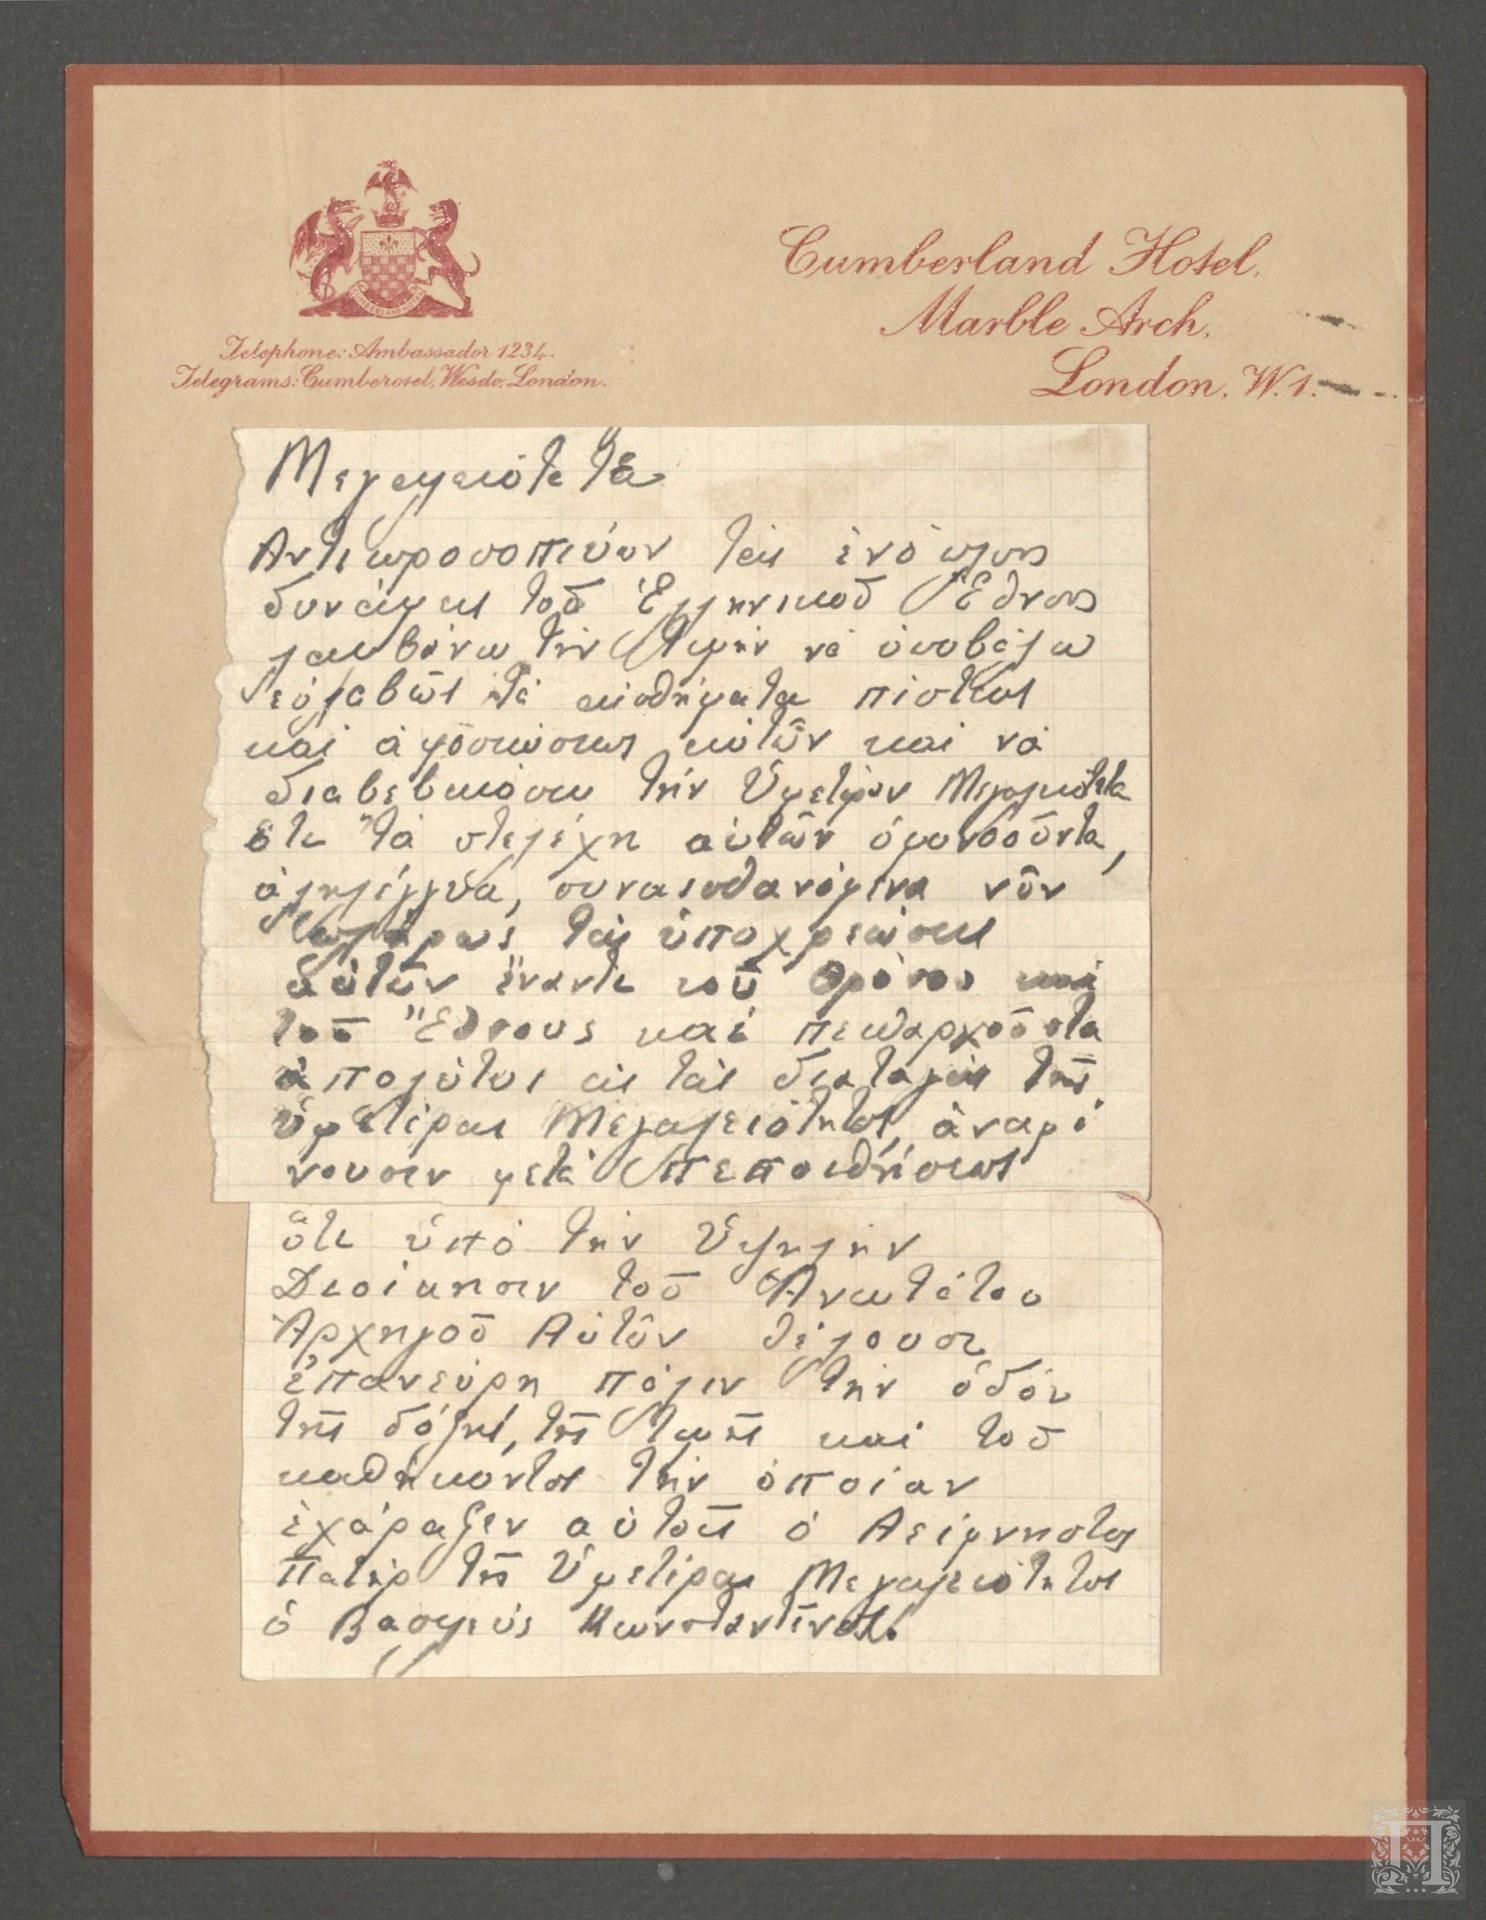 Cumberland Hotel,
Marble Arch,
London, W.1.
Telephone: Ambassador 1234.
Telegrams: Cumberotel, Wesdo, London.
Μεγαλειότατε
Αντιπροσοπεύων τάς ἐνόπλους
δυνάμεις τοῦ Ἑλληνικοῦ Ἔθνους
λαμβάνω τήν τιμήν νά ὑποβάλω
εὐλαβῶς τά αἰσθήματα πίστεως
καί ἀφοσιώσεως αὐτῶν καί νά
διαβεβαιώσω τήν Ὑμετέραν Μεγαλειότητα
ὅτι τά στελέχη αὐτῶν ὁμονοοῦντα,
ἀλληλέγγυα, συναισθανόμενα νῦν
πλήρως τάς ὑποχρεώσεις
αὐτῶν ἔναντι τοῦ Θρόνου καί
τοῦ Ἔθνους καί πειθαρχοῦντα
ἀπολύτως εἰς τάς διαταγάς τῆς
Ὑμετέρας Μεγαλειότητος, ἀναμέ
νουσιν μετά πεποιθήσεως
ὅτι ὑπό τήν Ὑψηλήν
Διοίκησιν τοῦ Ἀνωτάτου
Ἀρχηγοῦ Αὐτῶν θέλουσι
ἐπανεύρη πάλιν τήν ὁδόν
τῆς δόξης, τῆς τιμῆς καί τοῦ
καθήκοντος τήν ὁποίαν
ἐχάραξεν αὐτοῖς ὁ Αείμνηστος
Πατήρ τῆς Ὑμετέρας Μεγαλειότητος
ὁ Βασιλεύς Κωνσταντῖνος.